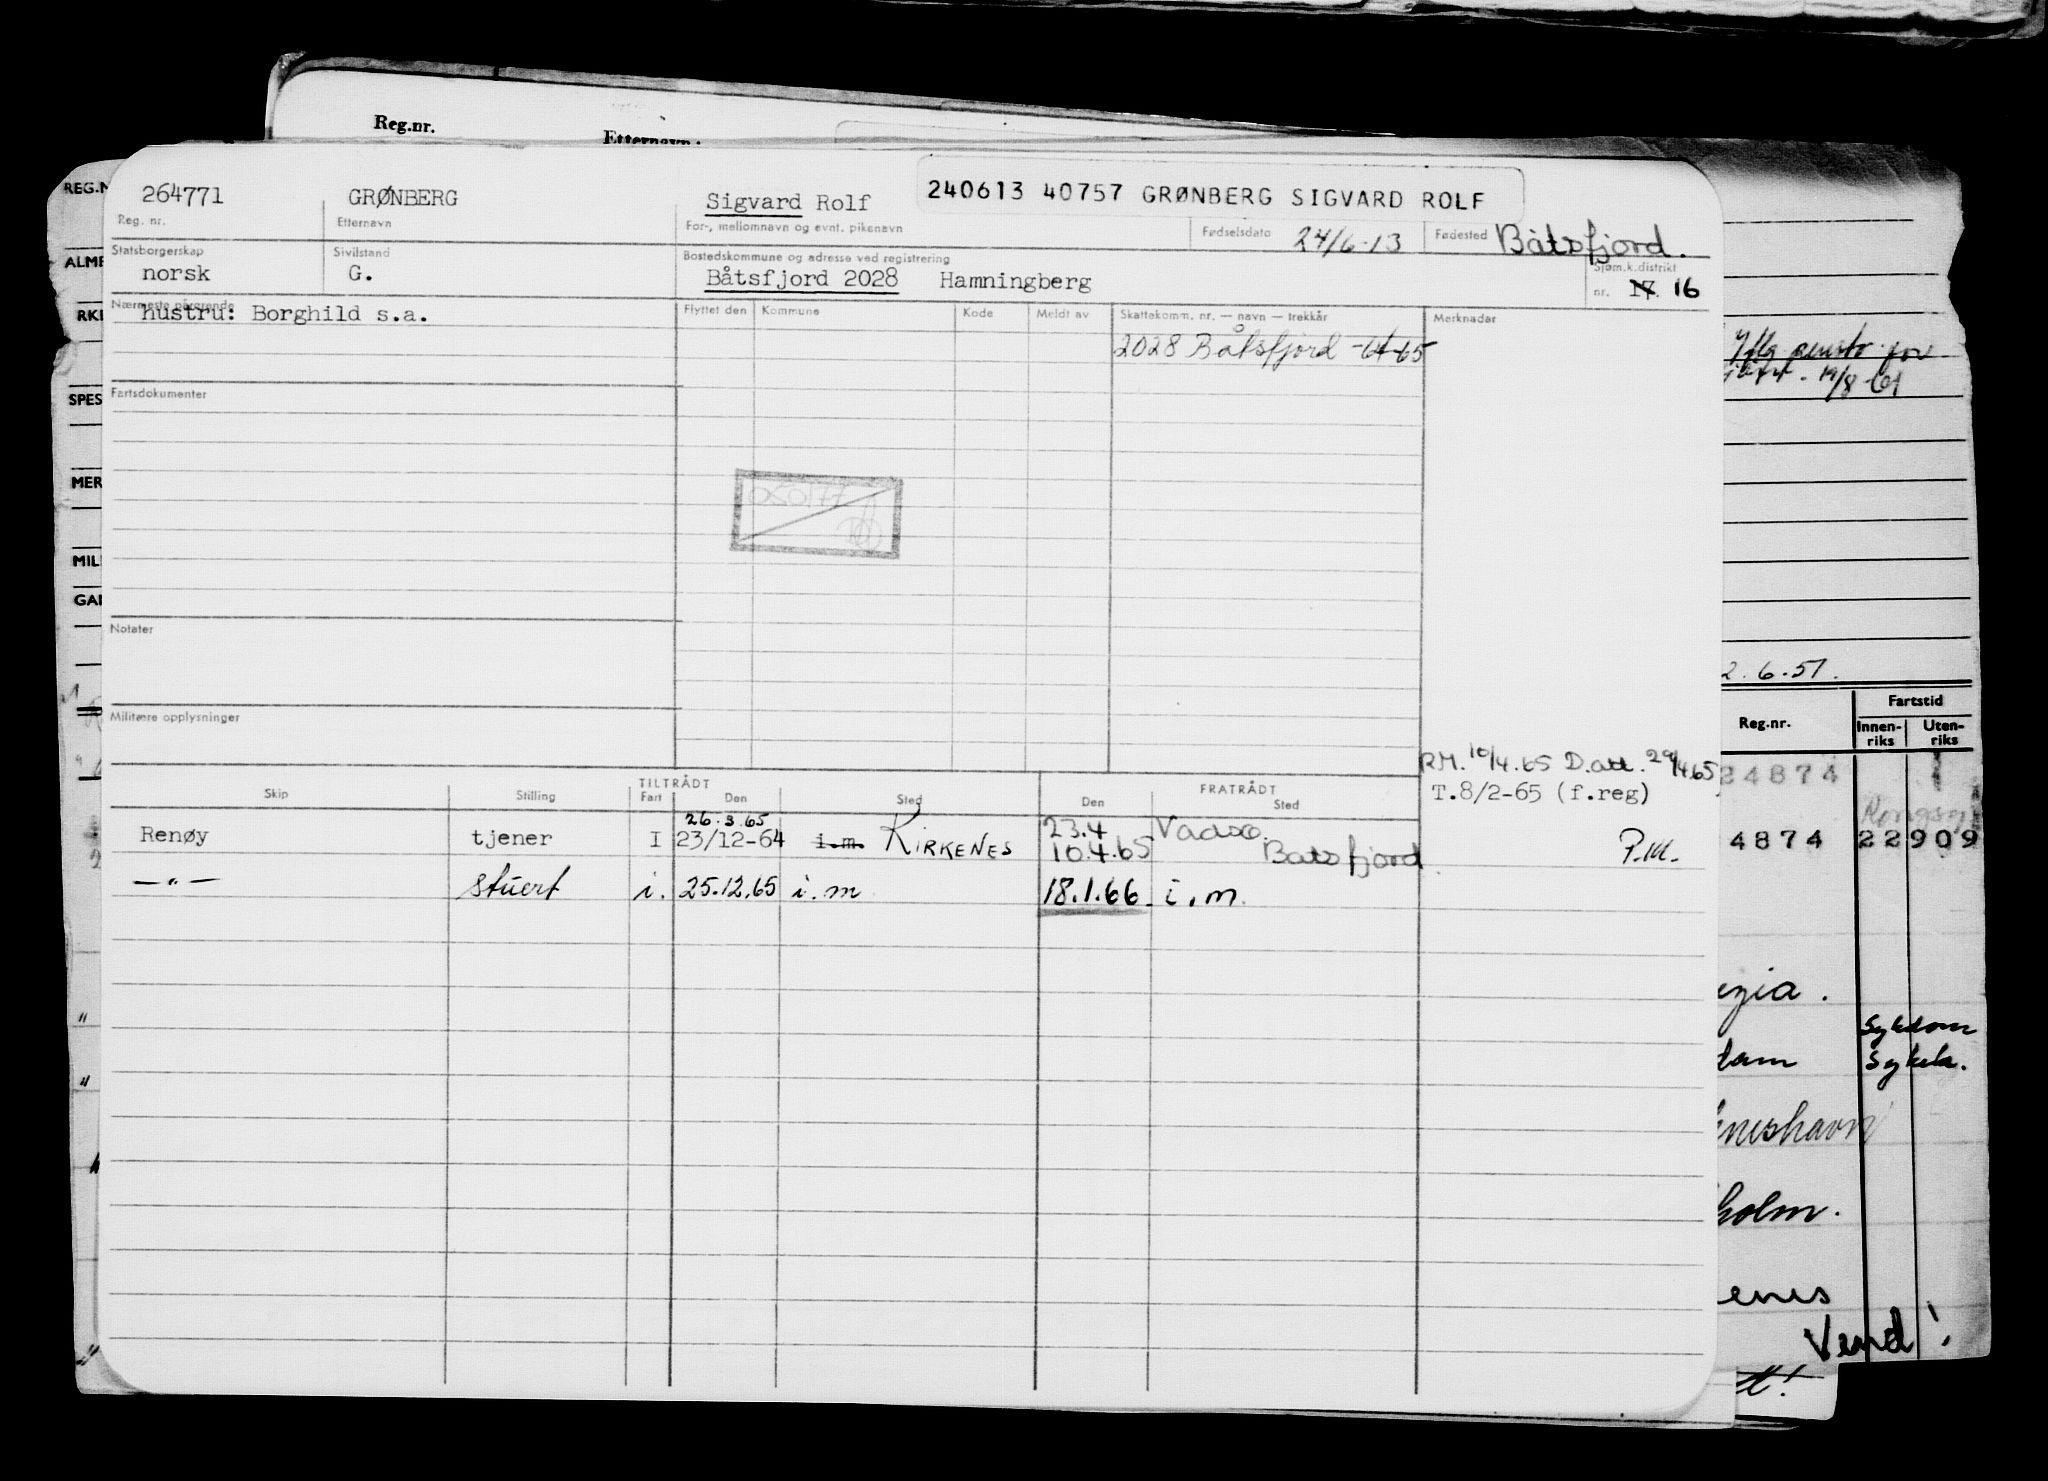 Reg.nr.
Etternavn:
264771 GRØNBERG Sigvard Rolf 240613 40757 GRØNBERG SIGVARD ROLF
Reg. nr. Etternavn For-, mellomnavn og evnt. pikenavn Fødselsdato 24/6-13 Fødested Båtsfjord.
Statsborgerskap Sivilstand Bostedskommune og adresse ved registrering Sjøm.k.distrikt
norsk G. Båtsfjord 2028 Hamningberg nr. 17. 16
Nærmeste pårørende Flyttet den Kommune Kode Meldt av Skattekomm. nr. — navn — trekkår Merknader
hustru: Borghild s.a.
2028 Båtsfjord -64-65
Fartsdokumenter
Notater
Militære opplysninger
RM. 10/4.65 D.att. 29/4.65
T.8/2-65 (f.reg)
TILTRÅDT FRATRÅDT
Skip Stilling Fart Den Sted Den Sted
26.3.65 23.4 Vadsø.
Renøy tjener I 23/12-64 i.m. KIRKENES 10.4.65 Båtsfjord. P.M.
—"— stuert i. 25.12.65 i.m 18.1.66 i.m.
REG.N
ALME
RKI
SPES
MER
MIL
GAI
19/8-61
2.6.51.
Reg.nr. Fartstid
Innen-riks Uten-riks
24874
4874 22909
Sykdom
dam Sykeh.
holm.
enes
Vend!